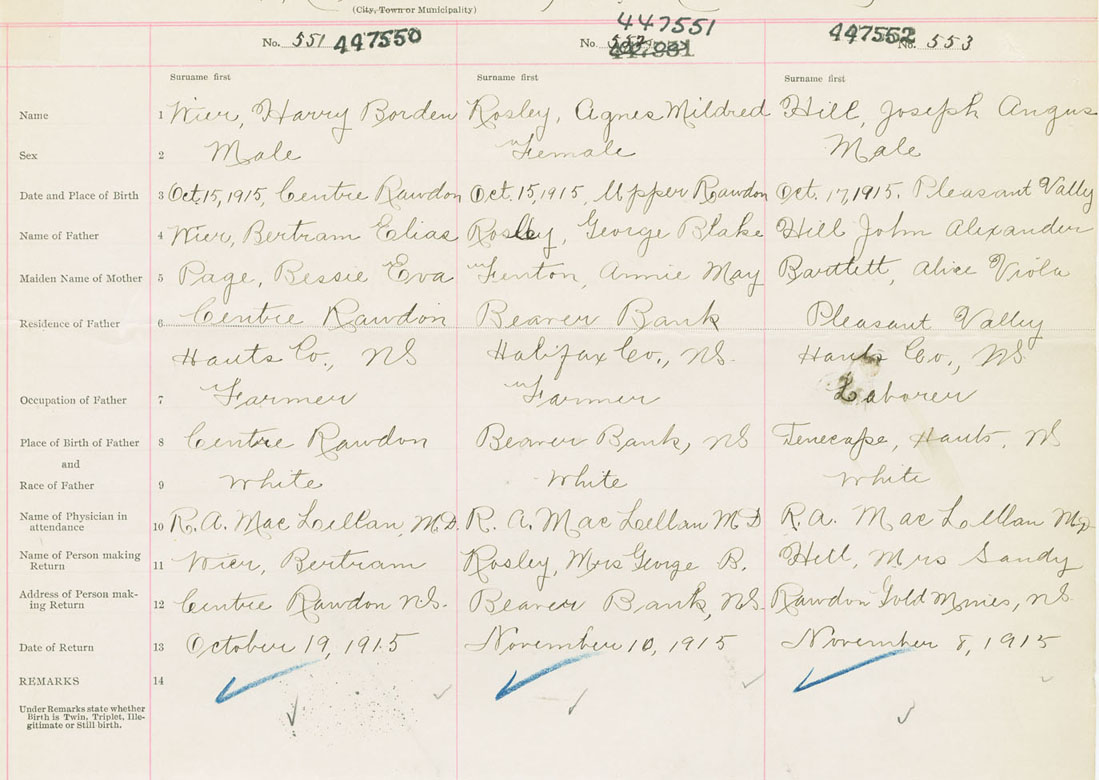 (City, Town or Municipality)
No. 551 447550
447551
No. 552
447552
No. 553
Surname first Surname first Surname first
Name 1 Wier, Harry Borden Rosley, Agnes Mildred Hill, Joseph Angus
Sex 2 Male Female Male
Date and Place of Birth 3 Oct. 15, 1915, Centre Rawdon Oct. 15, 1915, Upper Rawdon Oct. 17, 1915. Pleasant Vally
Name of Father 4 Wier, Bertram Elias Rosley, George Blake Hill John Alexander
Maiden Name of Mother 5 Page, Bessie Eva Fenton, Annie May Bartlett, Alice Viola
Residence of Father 6 Centre Rawdon Beaver Bank Pleasant Valley
Hants Co., NS Halifax Co., NS. Hants Co., NS
Occupation of Father 7 Farmer Farmer Laborer
Place of Birth of Father 8 Centre Rawdon Beaver Bank, NS Tenecape, Hants, NS
and
Race of Father 9 White White White
Name of Physician in
attendance 10 R. A. MacLellan, M.D. R. A. MacLellan M D R. A. MacLellan M.D.
Name of Person making
Return 11 Wier, Bertram Rosley, Mrs George B. Hill, Mrs Sandy
Address of Person mak-
ing Return 12 Centre Rawdon N.S. Beaver Bank, N.S. Rawdon Gold Mines, NS
Date of Return 13 October 19, 1915 November 10, 1915 November 8, 1915
REMARKS 14
Under Remarks state whether
Birth is Twin, Triplet, Ille-
gitimate or Still birth.